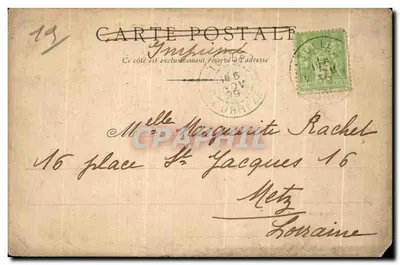 19
CARTE POSTALE
Imprimé
Ce côté est exclusivement réservé à l'adresse
Melle Marguerite Rachel
16 place St Jacques 16
Metz
Lorraine